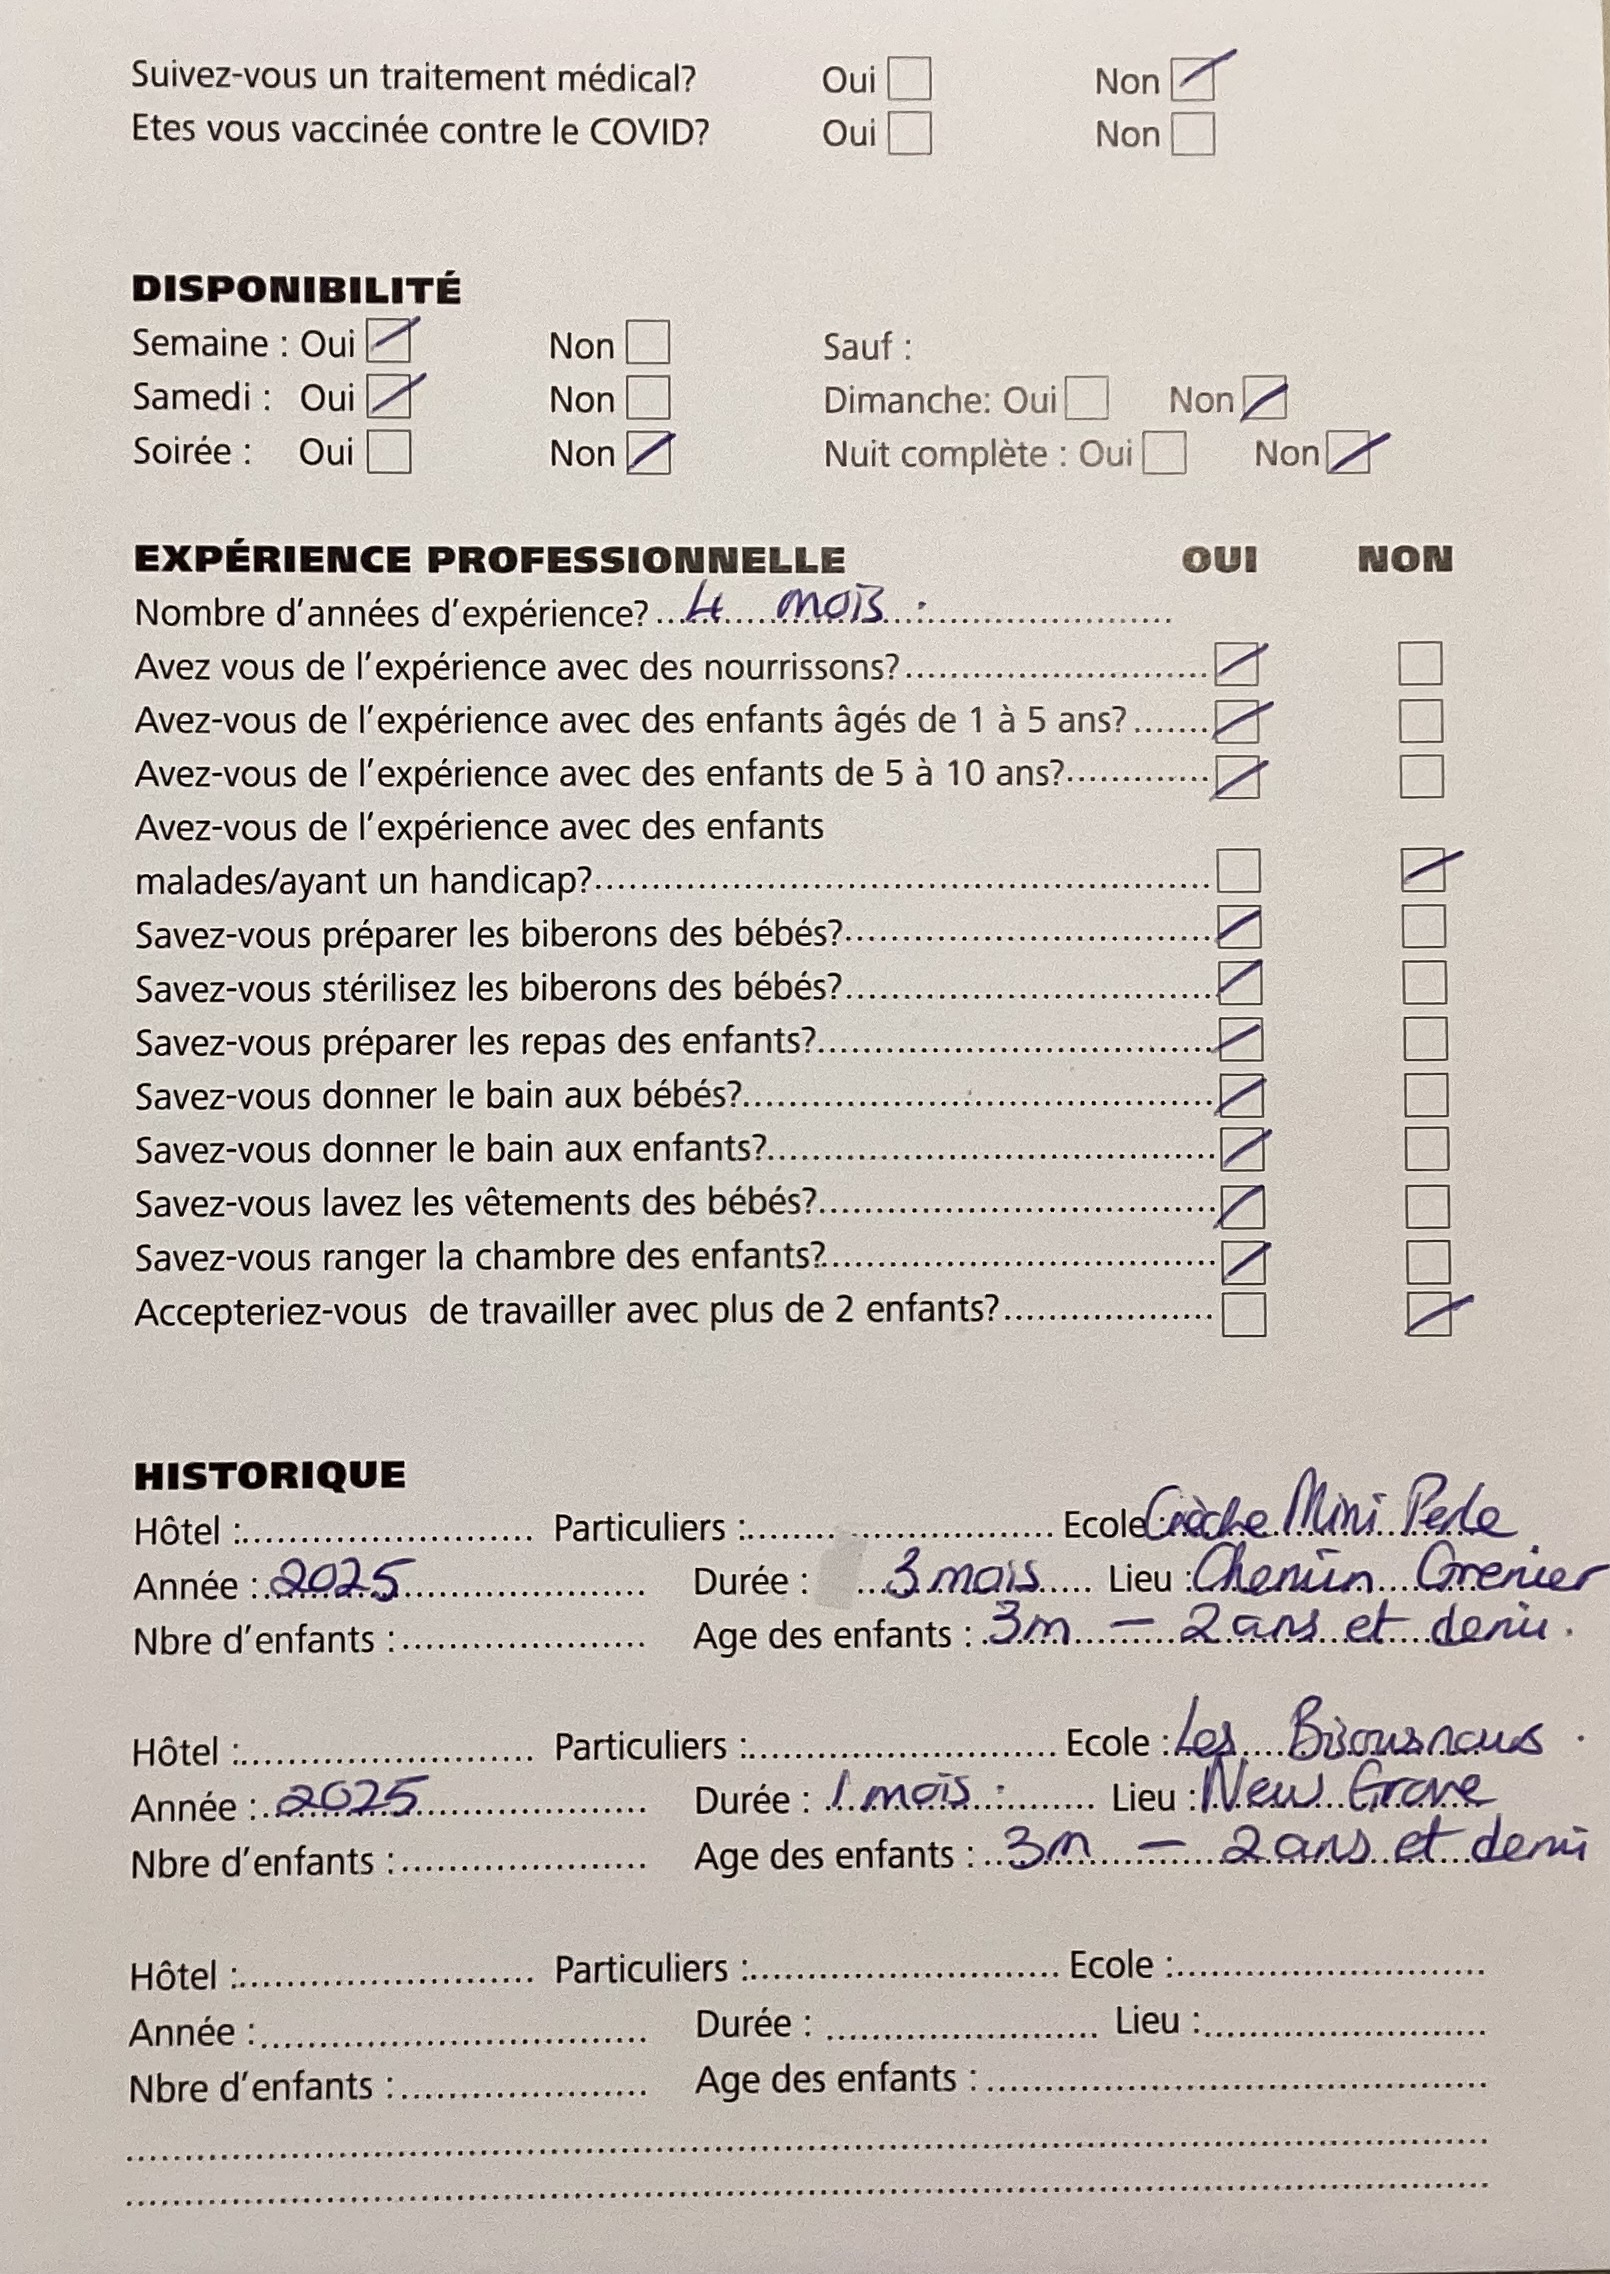 Suivez-vous un traitement médical? Oui Non
Etes vous vaccinée contre le COVID? Oui Non
DISPONIBILITÉ
Semaine : Oui Non Sauf :
Samedi : Oui Non Dimanche: Oui Non
Soirée : Oui Non Nuit complète : Oui Non
EXPÉRIENCE PROFESSIONNELLE OUI NON
Nombre d'années d'expérience? 4 mois.
Avez vous de l'expérience avec des nourrissons?
Avez-vous de l'expérience avec des enfants âgés de 1 à 5 ans?
Avez-vous de l'expérience avec des enfants de 5 à 10 ans?
Avez-vous de l'expérience avec des enfants
malades/ayant un handicap?
Savez-vous préparer les biberons des bébés?
Savez-vous stérilisez les biberons des bébés?
Savez-vous préparer les repas des enfants?
Savez-vous donner le bain aux bébés?
Savez-vous donner le bain aux enfants?
Savez-vous lavez les vêtements des bébés?
Savez-vous ranger la chambre des enfants?
Accepteriez-vous de travailler avec plus de 2 enfants?
HISTORIQUE
Hôtel : Particuliers : Ecole : Crèche Mini Perle
Année : 2025 Durée : 3 mois Lieu : Chemin Grenier
Nbre d'enfants : Age des enfants : 3m - 2 ans et demi.
Hôtel : Particuliers : Ecole : Les Bisousnous.
Année : 2025 Durée : 1 mois. Lieu : New Grove
Nbre d'enfants : Age des enfants : 3m - 2 ans et demi
Hôtel : Particuliers : Ecole :
Année : Durée : Lieu :
Nbre d'enfants : Age des enfants :